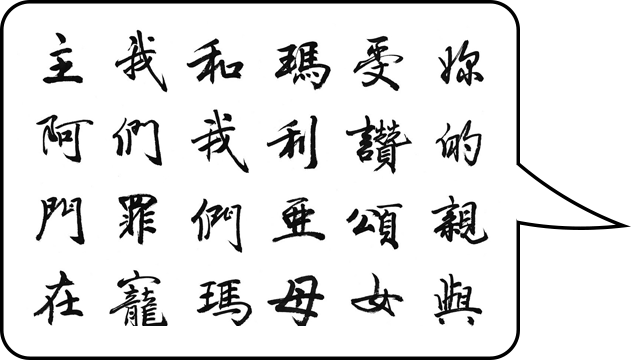 妳的親與
受讚頌女
瑪利亞母
和我們瑪
我們罪寵
主阿門在